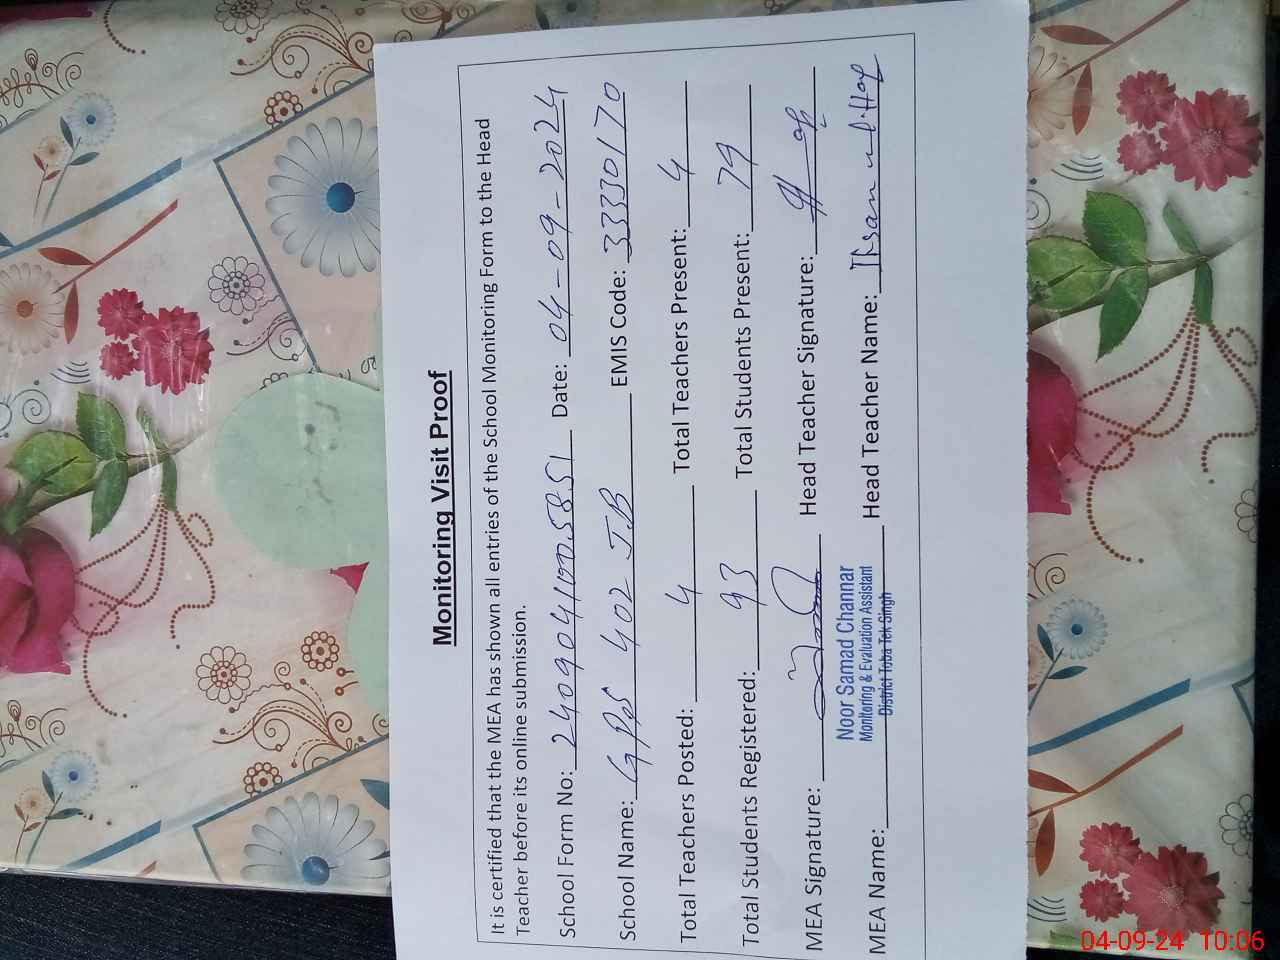 Monitoring Visit Proof
It is certified that the MEA has shown all entries of the School Monitoring Form to the Head
Teacher before its online submission.
School Form No: 2409041005851 Date: 04-09-2024
School Name: GPS 402 J.B EMIS Code: 33330170
Total Teachers Posted: 4 Total Teachers Present: 4
Total Students Registered: 93 Total Students Present: 79
MEA Signature: Head Teacher Signature:
Noor Samad Channar
Monitoring & Evaluation Assistant
District Toba Tek Singh
MEA Name: Head Teacher Name: Ihsan ul Haq
04-09-24 10:06